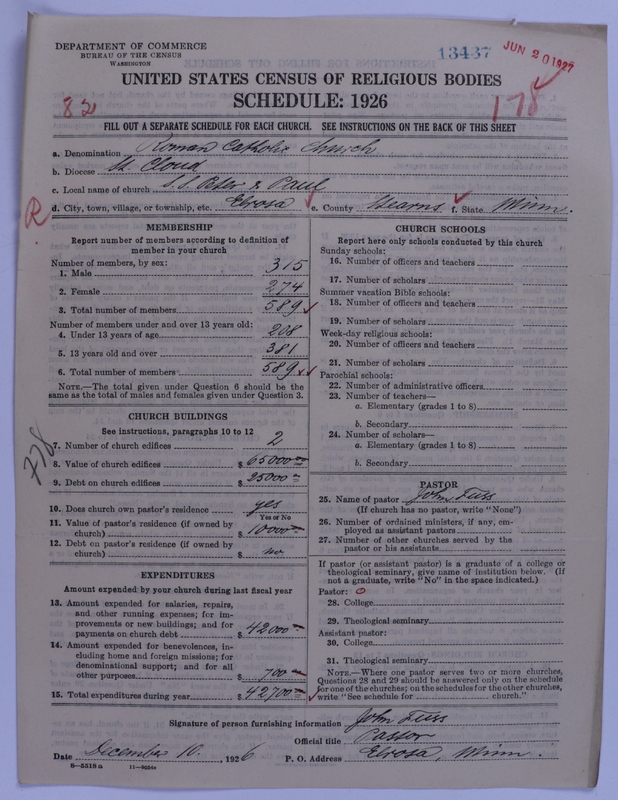 DEPARTMENT OF COMMERCE
BUREAU OF THE CENSUS
WASHINGTON
13437
JUN 20 1927
UNITED STATES CENSUS OF RELIGIOUS BODIES
82
SCHEDULE: 1926
178
FILL OUT A SEPARATE SCHEDULE FOR EACH CHURCH. SEE INSTRUCTIONS ON THE BACK OF THIS SHEET
a. Denomination Roman Catholic Church
b. Diocese St. Cloud
c. Local name of church S.S. Peter & Paul
R
d. City, town, village, or township, etc. Elrosa e. County Stearns f. State Minn.
MEMBERSHIP
Report number of members according to definition of
member in your church
Number of members, by sex:
1. Male 315
2. Female 274
3. Total number of members 589
Number of members under and over 13 years old:
4. Under 13 years of age 208
5. 13 years old and over 381
6. Total number of members 589
NOTE.—The total given under Question 6 should be the
same as the total of males and females given under Question 3.
CHURCH BUILDINGS
See instructions, paragraphs 10 to 12
778
7. Number of church edifices 2
8. Value of church edifices $ 65000.00
9. Debt on church edifices $ 25000
10. Does church own pastor's residence yes
Yes or No
11. Value of pastor's residence (if owned by
church) $ 10000
12. Debt on pastor's residence (if owned by
church) $ no
EXPENDITURES
Amount expended by your church during last fiscal year
13. Amount expended for salaries, repairs,
and other running expenses; for im-
provements or new buildings; and for
payments on church debt $ 42000
14. Amount expended for benevolences, in-
cluding home and foreign missions; for
denominational support; and for all
other purposes $ 700
15. Total expenditures during year $ 42700
CHURCH SCHOOLS
Report here only schools conducted by this church
Sunday schools:
16. Number of officers and teachers
17. Number of scholars
Summer vacation Bible schools:
18. Number of officers and teachers
19. Number of scholars
Week-day religious schools:
20. Number of officers and teachers
21. Number of scholars
Parochial schools:
22. Number of administrative officers
23. Number of teachers—
a. Elementary (grades 1 to 8)
b. Secondary
24. Number of scholars—
a. Elementary (grades 1 to 8)
b. Secondary
PASTOR
25. Name of pastor John Fuss
(If church has no pastor, write "None")
26. Number of ordained ministers, if any, em-
ployed as assistant pastors
27. Number of other churches served by the
pastor or his assistants
If pastor (or assistant pastor) is a graduate of a college or
theological seminary, give name of institution below. (If
not a graduate, write "No" in the space indicated.)
Pastor: O
28. College
29. Theological seminary
Assistant pastor:
30. College
31. Theological seminary
NOTE.—Where one pastor serves two or more churches,
Questions 28 and 29 should be answered only on the schedule
for one of the churches; on the schedules for the other churches,
write "See schedule for church."
Signature of person furnishing information John Fuss
Official title Pastor
Date December 10. 1926 P. O. Address Elrosa, Minn.
8—5518a 11—9054